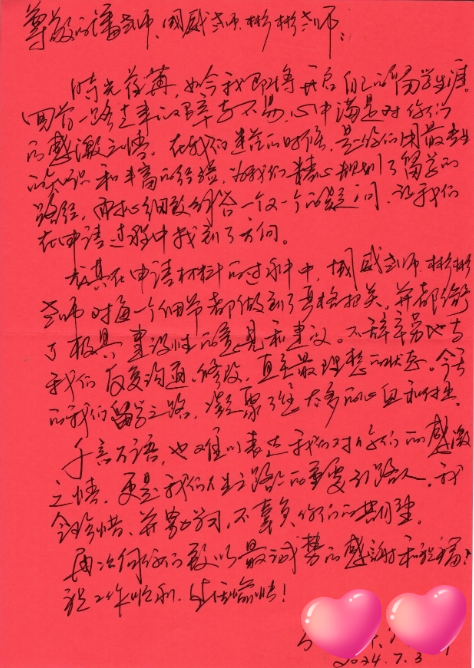 尊敬的潘老师、国威老师、彬彬老师：
时光荏苒，如今我即将开启自己的留学生涯。
回首一路走来的艰辛与不易，心中满是对你们
的感激之情。在我们迷茫的时候，是你们用最专业
的知识和丰富的经验，为我们精心规划了留学的
路径，耐心细致解答一个又一个的疑问，让我们
在申请过程中找到了方向。
尤其在申请材料的过程中，国威老师、彬彬
老师对每一个细节都做到了严格把关，并都给予
了极具建设性的意见和建议。不辞辛劳地与
我们反复沟通、修改，直至最理想的状态。今天
的我们留学之路，凝聚了您太多的心血和付出。
千言万语，也难以表达我们对你们的感激
之情，更是我们人生之路上的重要引路人，我
会珍惜，并努力学习，不辜负你们的期望。
再次向你们致以最诚挚的感谢和祝福，
祝工作顺利，生活愉快！
2024.7.3